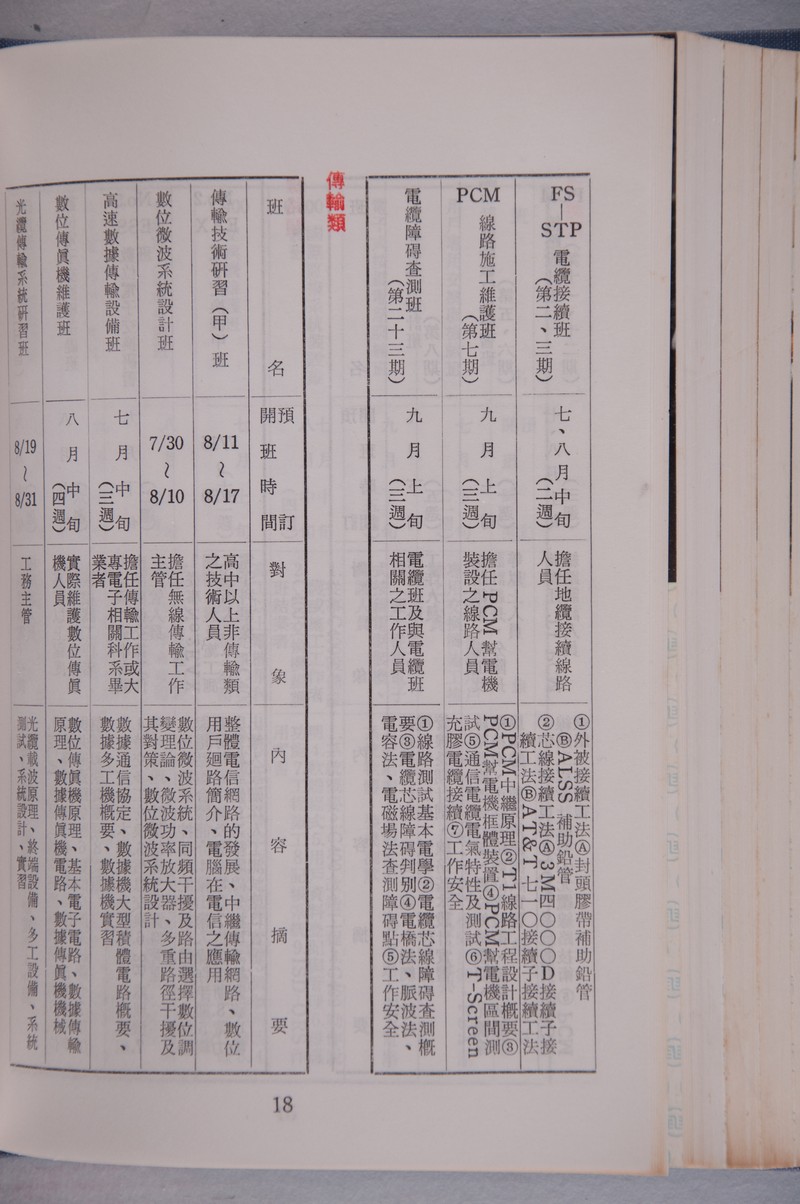 FS—STP 電纜接續班
(第二、三期)
七、八月中旬
(二週)
擔任地纜接續線路
人員
①外被接續工法Ⓐ封頭膠帶補助鉛管
ⒷALSS 補助鉛管
②芯線接續工法Ⓐ3M四〇〇〇D接續子接
續工法ⒷAT&T七一〇接續子接續工法
PCM 線路施工維護班
(第七期)
九月上旬
(三週)
擔任 PCM 幫電機
裝設之線路人員
①PCM中繼原理②T1線路工程設計概要③
PCM幫電機框體裝置④PCM幫電機區間測
試⑤通信電纜電氣特性及測試⑥T-Screen
充膠電纜接續⑦工作安全
電纜障碍查測班
(第二十三期)
九月上旬
(三週)
電纜班及與電纜班
相關之工作人員
①線路測試基本電學②電纜芯線障碍查測概
要③電纜芯線障碍判別④電橋法、脈波法、
電容法、電磁場法查測障碍點⑤工作安全
傳輸類
班名
預訂
開班時間
對象
內容摘要
傳輸技術研習(甲)班
8/11~8/17
高中以上非傳輸類
之技術人員
整體電信網路的發展、中繼傳輸網路、數位
用戶迴路簡介、電腦在電信之應用
數位微波系統設計班
7/30~8/10
擔任無線傳輸工作
主管
數位微波系統、同頻干擾及路由選擇數位調
變理論、微波功率放大器、多重路徑干擾及
其對策、數位微波系統設計
高速數據傳輸設備班
七月中旬
(三週)
擔任傳輸工作或大
專電子相關科系畢
業者
數據通信協定、數據機大型積體電路概要、
數據多工機概要、數據機實習
數位傳眞機維護班
八月中旬
(四週)
實際維護數位傳眞
機人員
數位傳眞機原理、基本電子電路、數據傳輸
原理、數據傳眞機電路、數據傳眞機機械
光纜傳輸系統研習班
8/19~8/31
工務主管
光纜載波原理、終端設備、多工設備、系統
測試、系統設計、實習
18